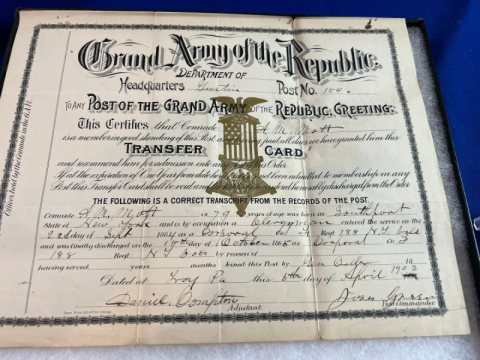 Grand Army of the Republic.
DEPARTMENT OF
Headquarters Post No. 184.
TO ANY POST OF THE GRAND ARMY OF THE REPUBLIC, GREETING:
This Certifies that Comrade Mott
is a member in good standing of this Post and having paid all dues we have granted him this
TRANSFER CARD
and recommend him for admission into any Post of the Order.
If at the expiration of One Year from date he has not been admitted to membership in any
Post this Transfer Card shall be void and he shall be honorably discharged from the Order.
THE FOLLOWING IS A CORRECT TRANSCRIPT FROM THE RECORDS OF THE POST.
Comrade Mott is 79 years of age was born in Southport
State of New York and is by occupation a Clergyman entered the service on the
22d of Sept 1864 as Corporal Co Regt 188 N.Y.
and was finally discharged on the 1st day of October 1865 as Corporal Co
188 Regt N.Y. by reason of
having served years months Joined this Post by
Dated at Troy Pa this 6th day of April 1903
Daniel Compton
Adjutant. Post Commander.